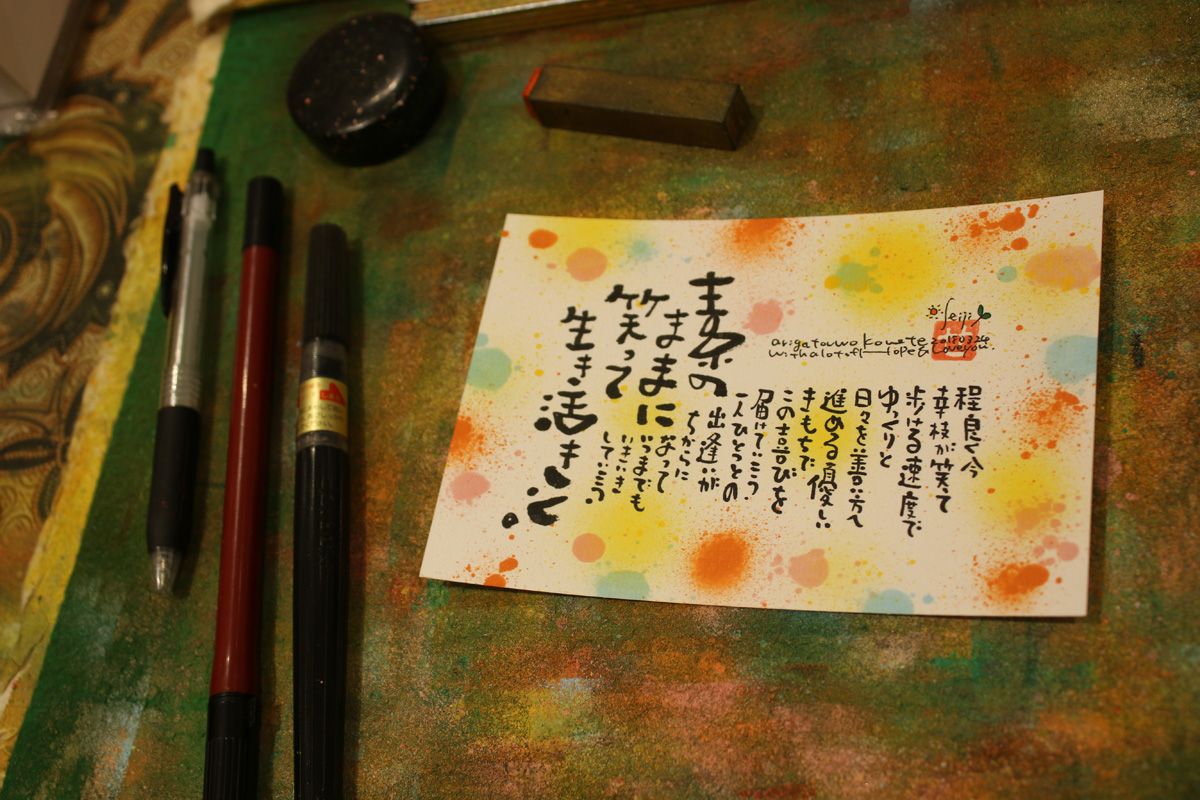 素の
ままに
笑って
生き活き
と。
Seiji
arigatouwo komete 20180324
with a lot of
Love you.
程良く今
幸枝が笑て
歩ける速度で
ゆっくりと
日々を善い方へ
進める優しい
きもちで
この喜びを
届けていこう
一人ひとつとの
出逢いが
ちからに
なって
いつまでも
いきいき
していこう。